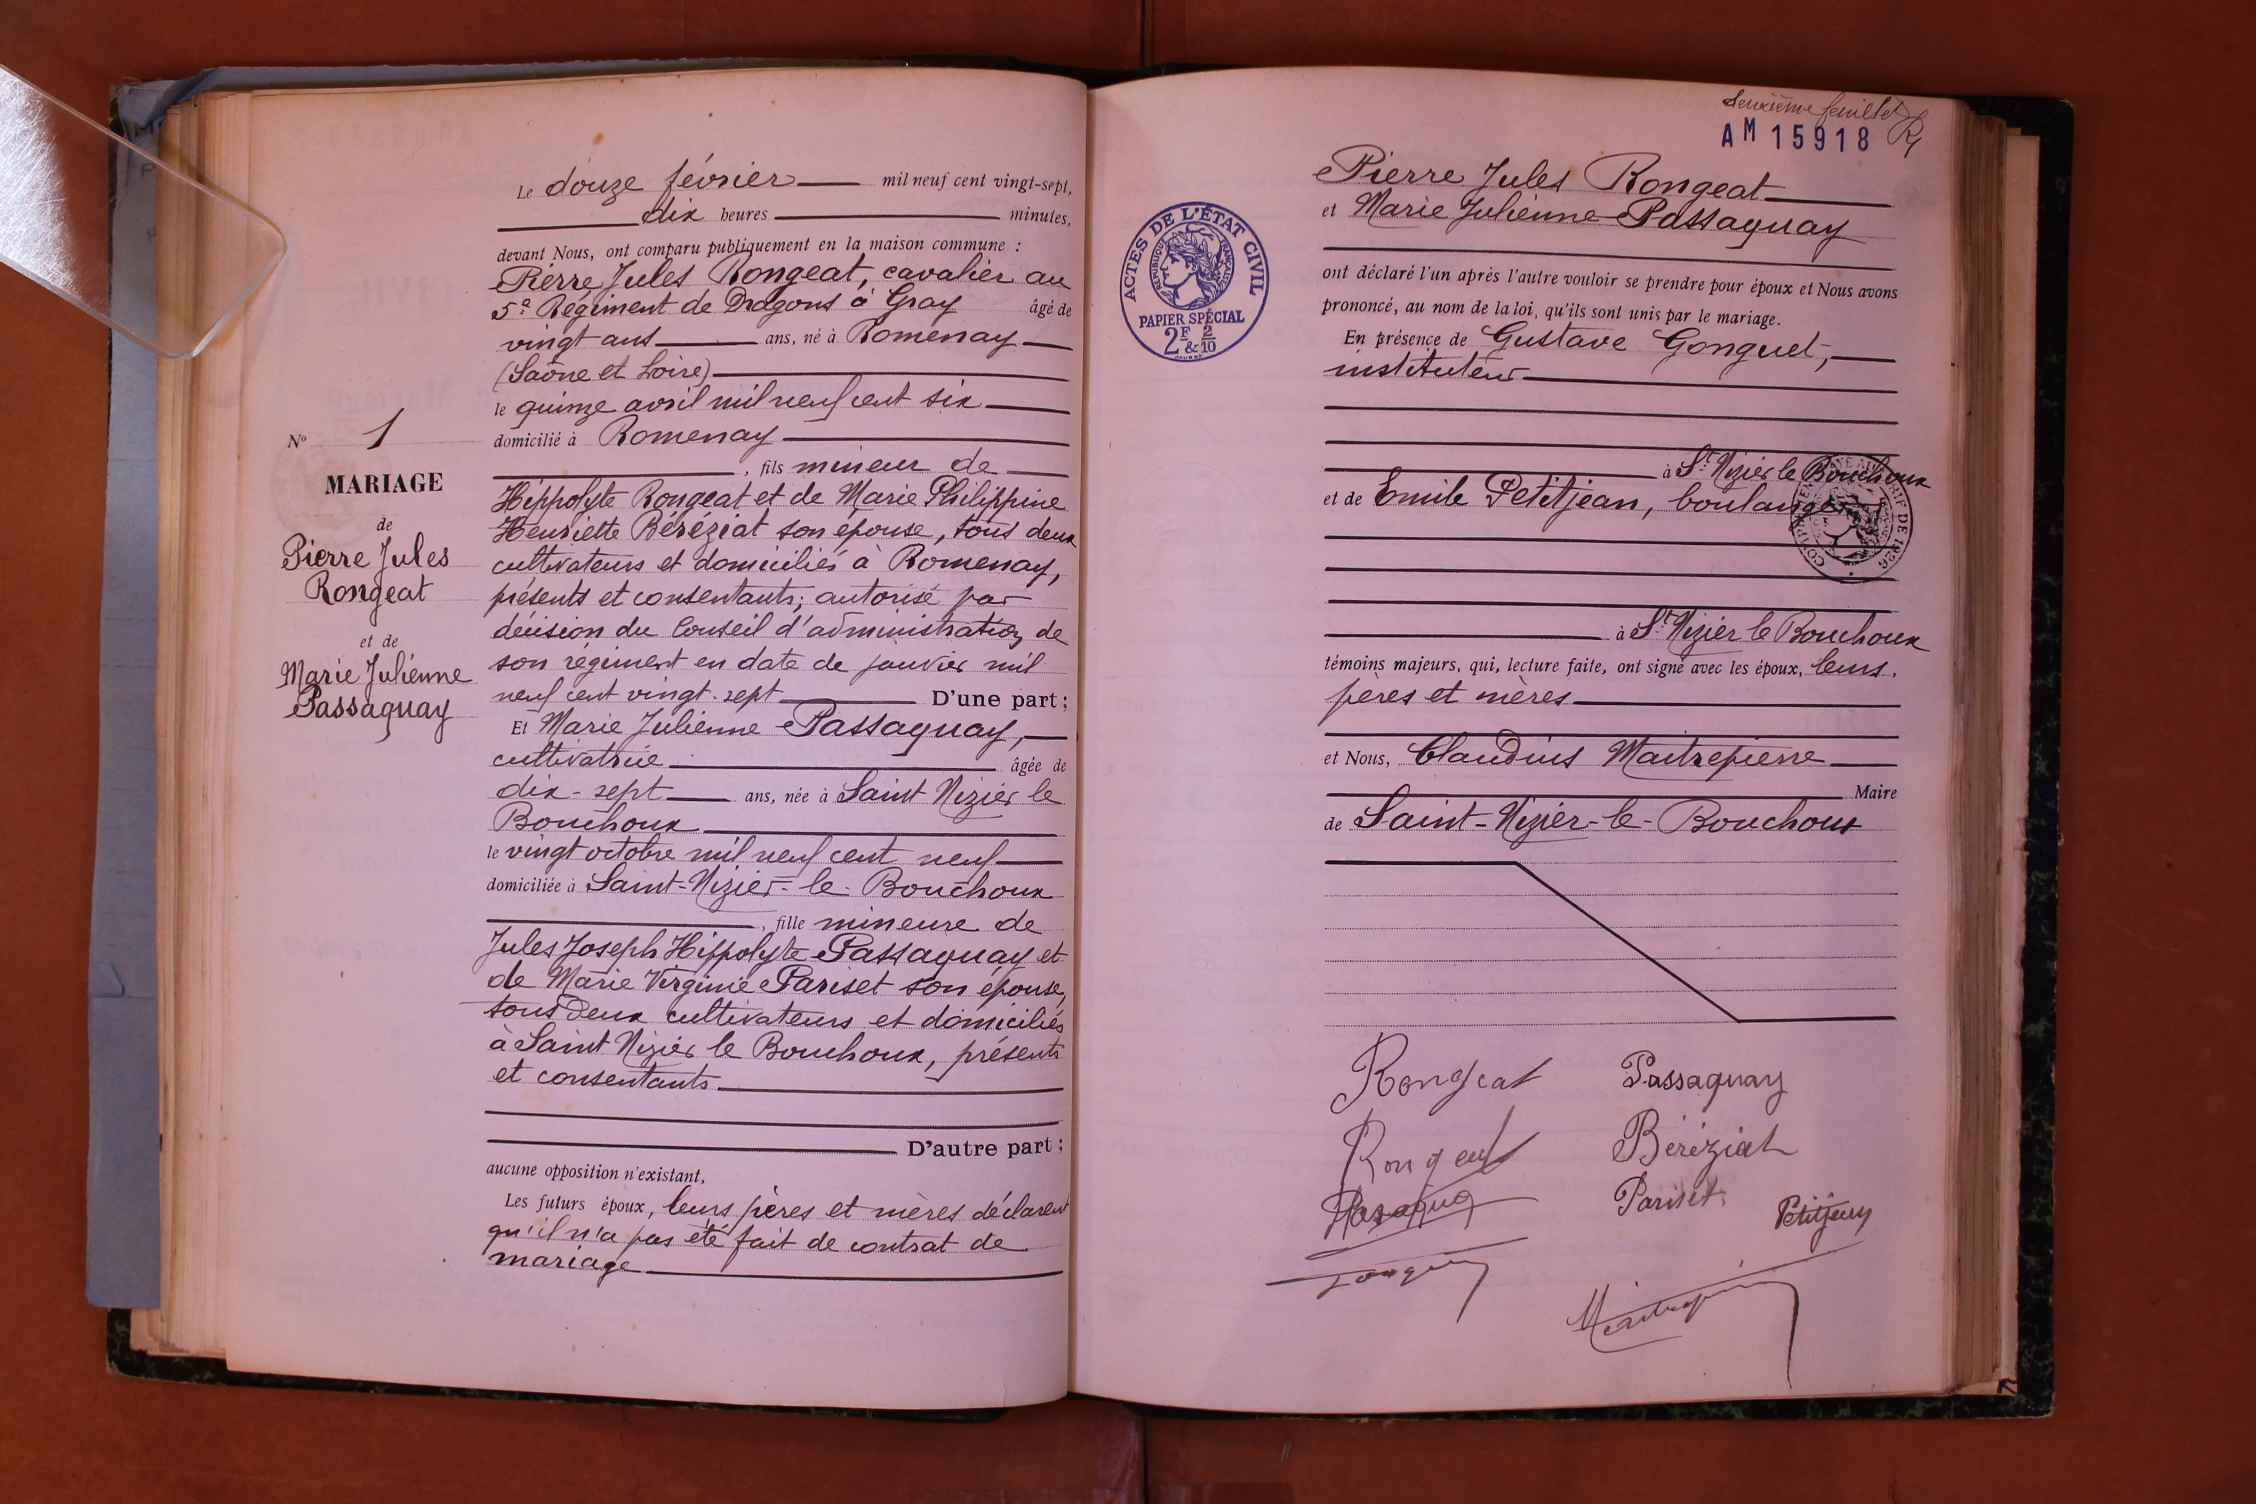 Le douze février mil neuf cent vingt-sept,
dix heures minutes,
devant Nous, ont comparu publiquement en la maison commune :
Pierre Jules Rongeat, cavalier au
5e Régiment de Dragons à Gray âgé de
vingt ans ans, né à Romenay
(Saône et Loire)
le quinze avril mil neuf cent six
domicilié à Romenay
, fils mineur de
Hippolyte Rongeat et de Marie Philippine
Henriette Béréziat son épouse, tous deux
cultivateurs et domiciliés à Romenay,
présents et consentants; autorisé par
décision du Conseil d'administration de
son régiment en date de janvier mil
neuf cent vingt-sept D'une part ;
Et Marie Julienne Passaquay,
cultivatrice âgée de
dix-sept ans, née à Saint Nizier le
Bouchoux
le vingt octobre mil neuf cent neuf
domiciliée à Saint-Nizier-le-Bouchoux
, fille mineure de
Jules Joseph Hippolyte Passaquay et
de Marie Virginie Pariset son épouse,
tous deux cultivateurs et domiciliés
à Saint Nizier le Bouchoux, présents
et consentants
D'autre part ;
aucune opposition n'existant,
Les futurs époux, leurs pères et mères déclarent
qu'il n'a pas été fait de contrat de
mariage
No 1
MARIAGE
de
Pierre Jules
Rongeat
et de
Marie Julienne
Passaquay
deuxième feuillet
AM 15918
ACTES DE L'ÉTAT CIVIL
RÉPUBLIQUE FRANÇAISE
PAPIER SPÉCIAL
2F & 2/10
Pierre Jules Rongeat
et Marie Julienne Passaquay
ont déclaré l'un après l'autre vouloir se prendre pour époux et Nous avons
prononcé, au nom de la loi, qu'ils sont unis par le mariage.
En présence de Gustave Gonguet,
instituteur
à St Nizier le Bouchoux
et de Emile Petitjean, boulanger
TARIF DE 1926
à St Nizier le Bouchoux
témoins majeurs, qui, lecture faite, ont signé avec les époux, leurs
pères et mères
et Nous, Claudius Maitrepierre
Maire
de Saint-Nizier-le-Bouchoux
Rongeat Passaquay
Rongeat Béréziat
Passaquay Pariset Petitjean
Gonguet
Maitrepierre